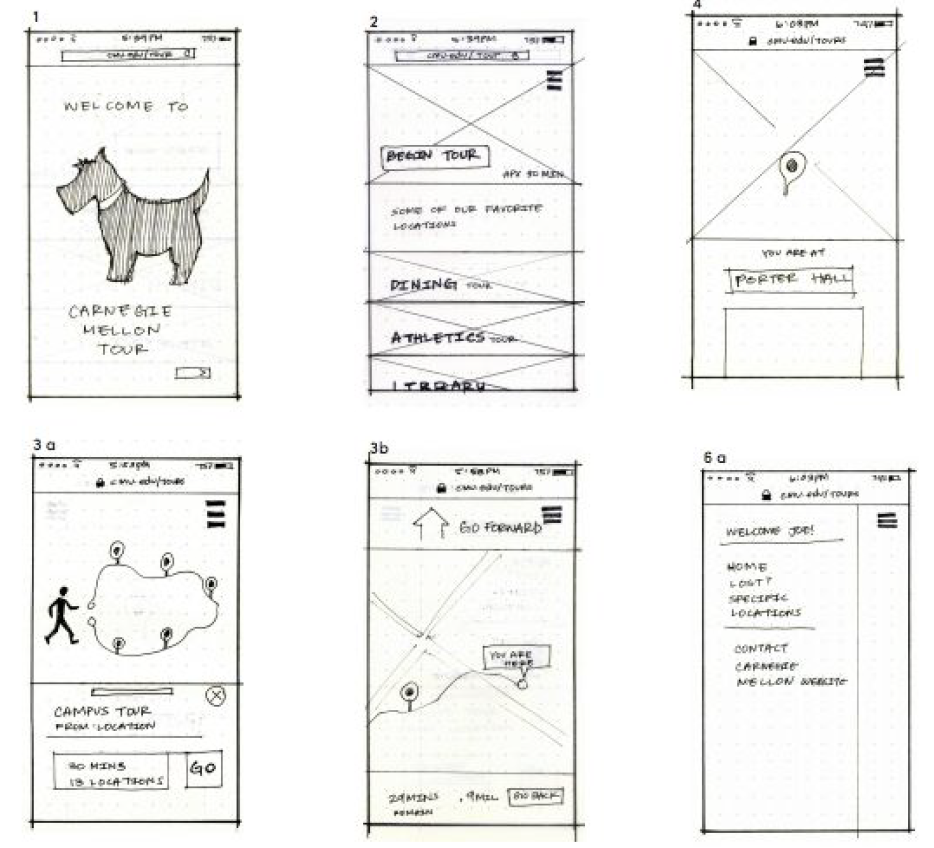 1
5:39PM
CMU-EDU/TOUR
WELCOME TO
CARNEGIE
MELLON
TOUR
2
5:39PM
CMU-EDU/TOUR
BEGIN TOUR
APX 30 MIN
SOME OF OUR FAVORITE
LOCATIONS
DINING TOUR
ATHLETICS TOUR
4
6:03PM
CMU-EDU/TOURS
YOU ARE AT
PORTER HALL
3a
CMU-EDU/TOURS
CAMPUS TOUR
FROM: LOCATION
30 MINS
13 LOCATIONS
GO
3b
5:58PM
CMU-EDU/TOURS
GO FORWARD
YOU ARE
HERE
29MINS
REMAIN
.9MIL
GO BACK
6a
CMU-EDU/TOURS
WELCOME JOE!
HOME
LOST?
SPECIFIC
LOCATIONS
CONTACT
CARNEGIE
MELLON WEBSITE